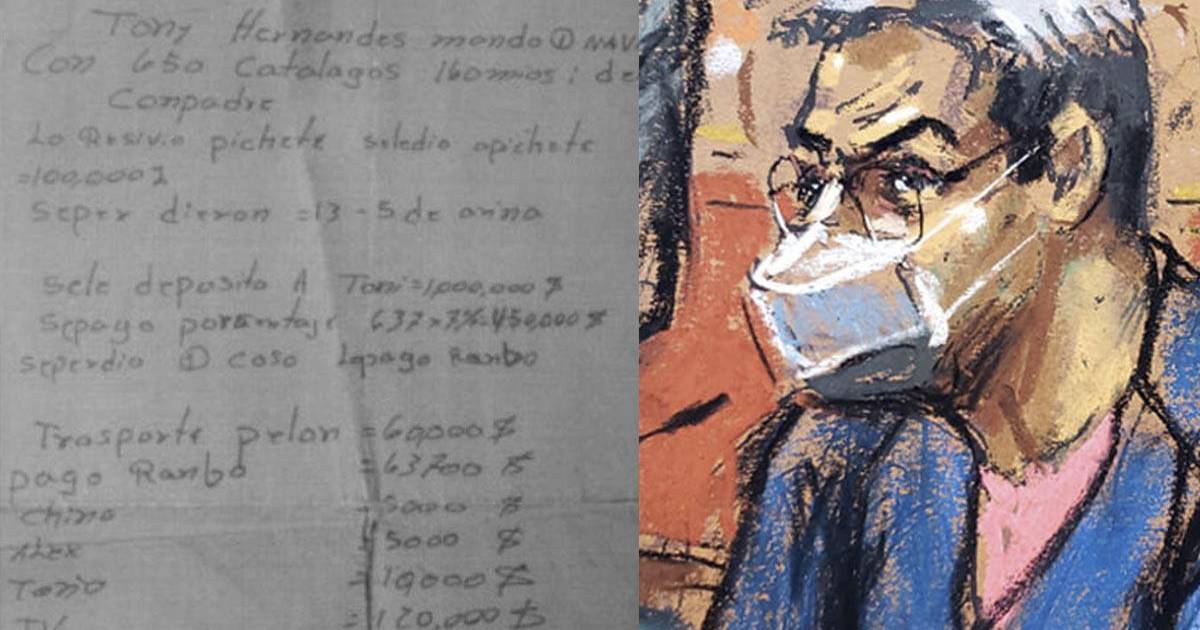 Tony Hernandes mando ① NAV
Con 650 Catalagos 160 mios: de
Conpadre
Lo Resivio pichete seledio apichete
=100,000$
Seper dieron =13 - 5 de arina
Sele deposito A Toni=1,000,000 $
Sepago porsentaje 637x7%=450,000 $
seperdio ① coso lopago Ranbo
Trasporte pelon =60,000 $
pago Ranbo =63700 $
chino = 5000 $
ALEX = 5000 $
Tonio = 10000 $
TV = 120,000 $